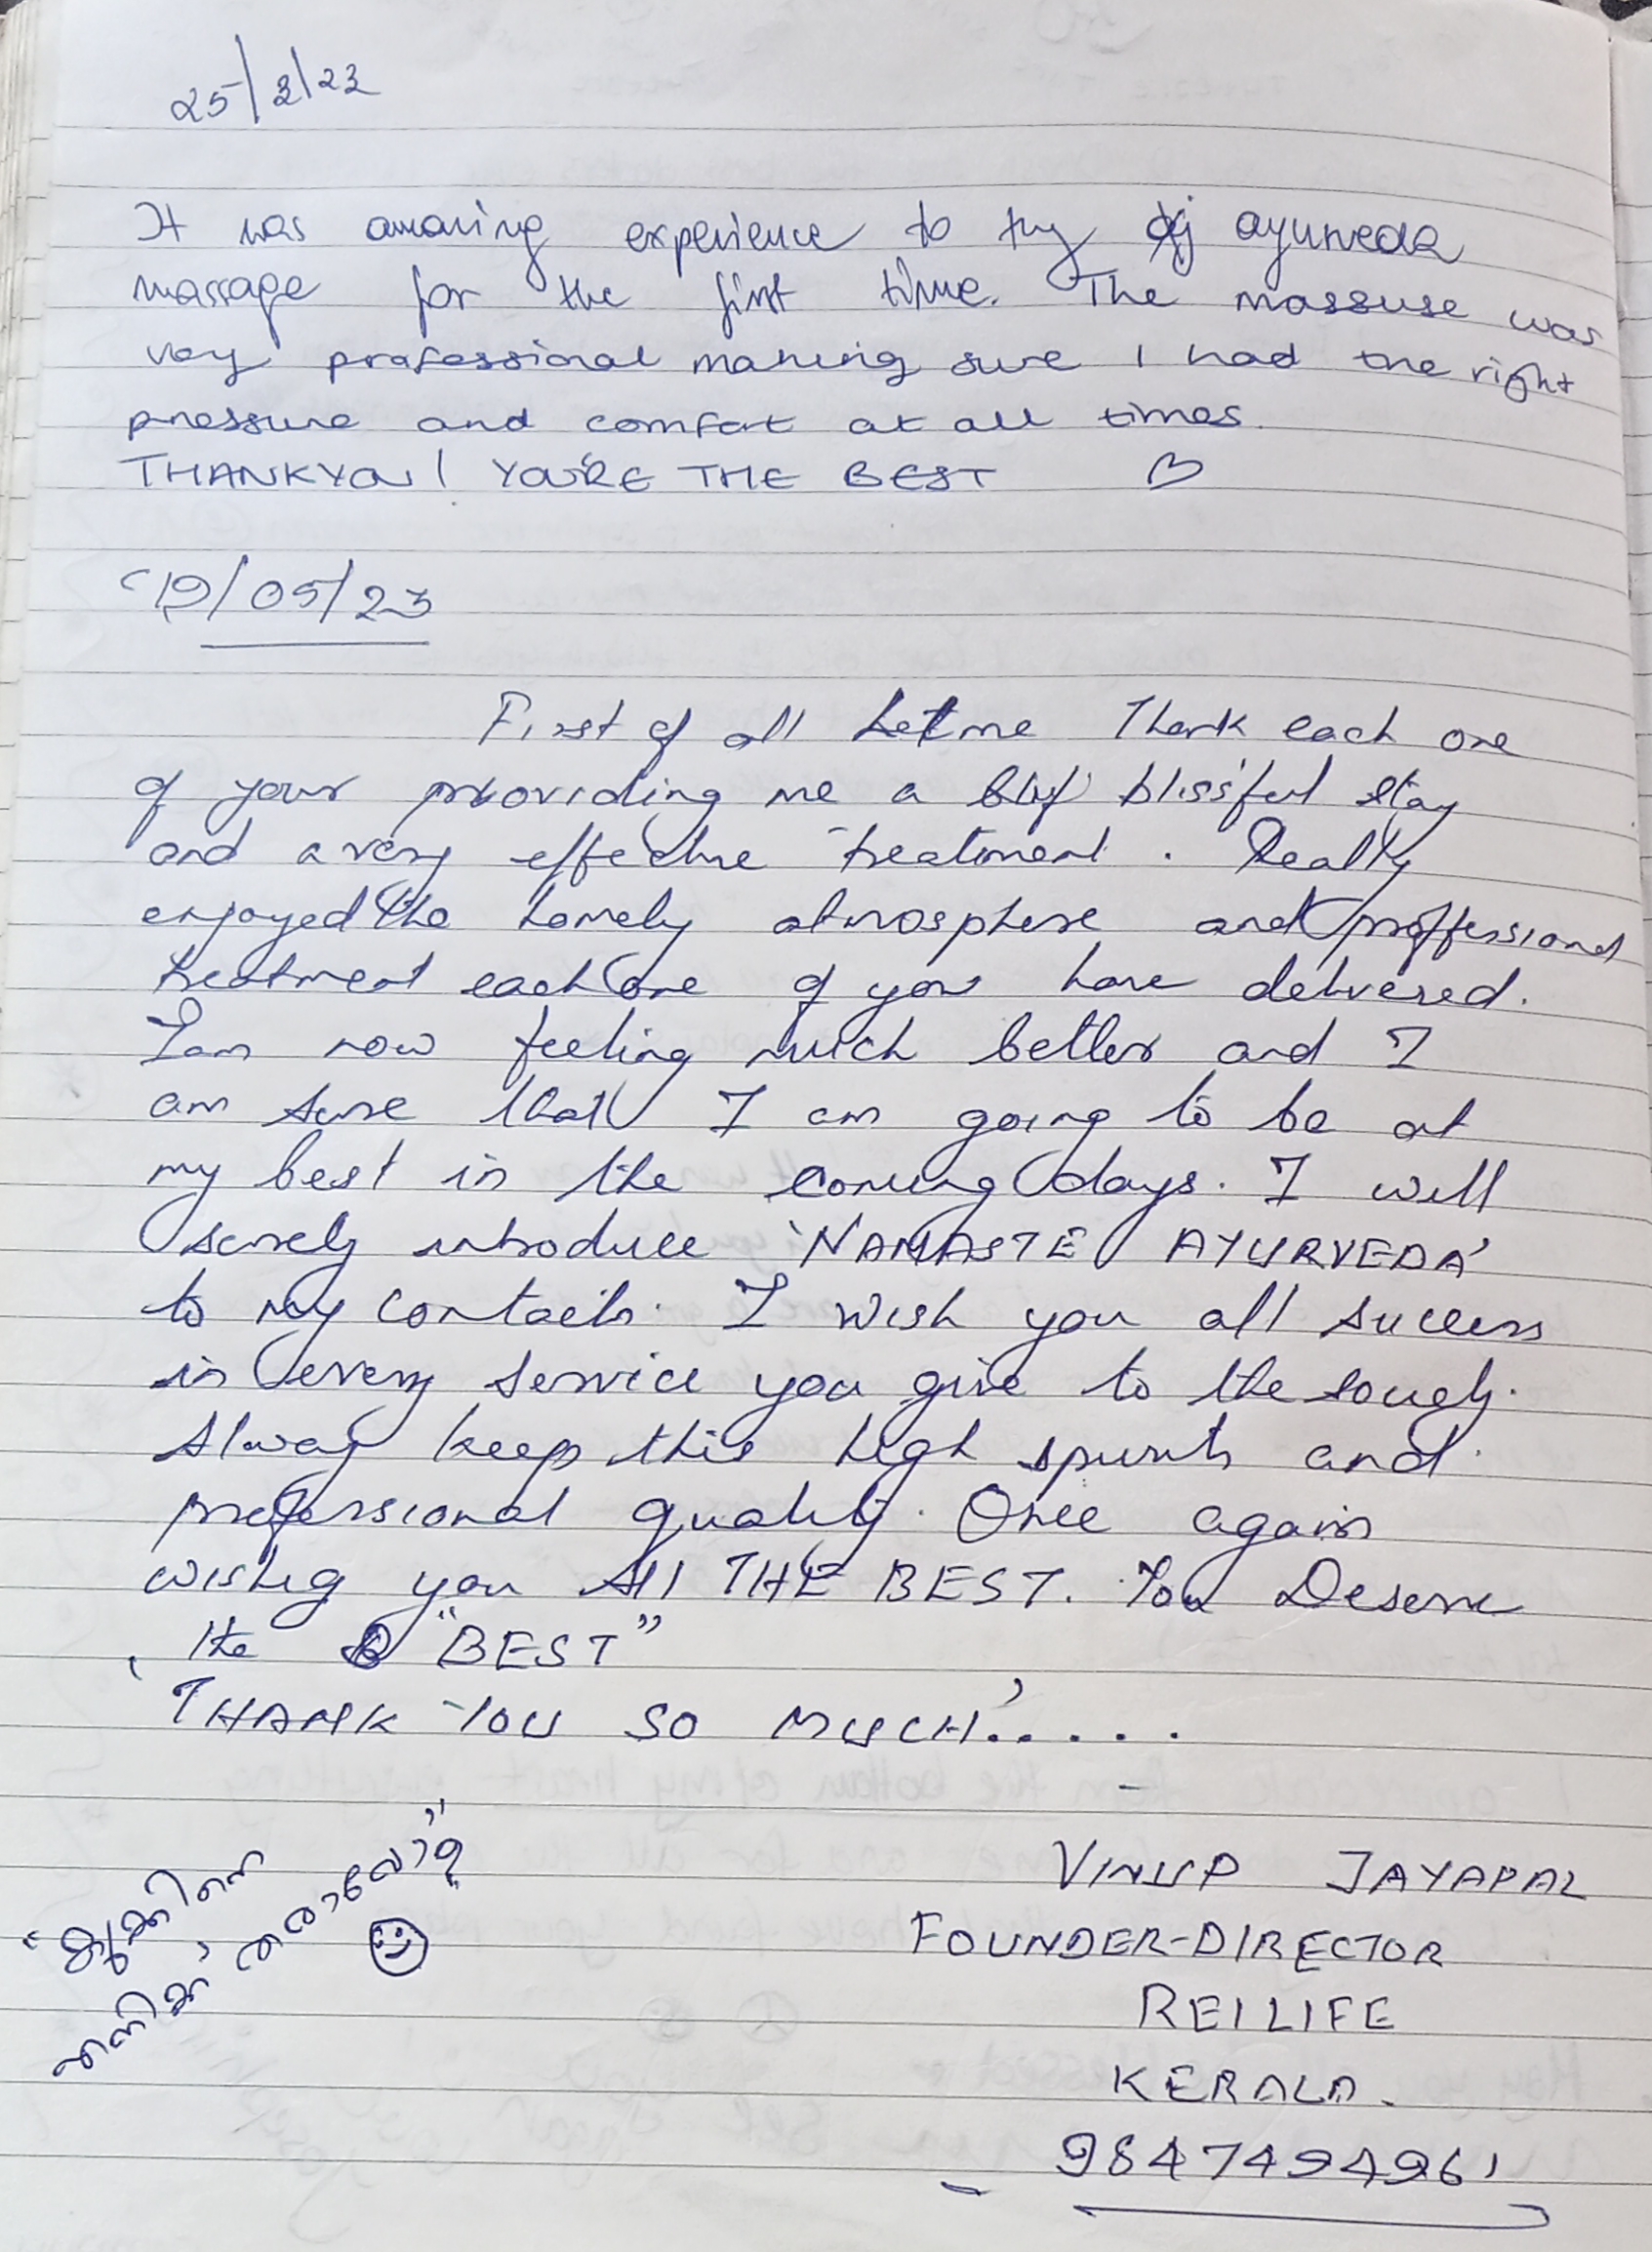 25/2/23
It was amazing experience to try ayurveda
massage for the first time. The massuse was
very professional making sure I had the right
pressure and comfort at all times.
THANKYOU! YOU'RE THE BEST
19/05/23
First of all Let me Thank each one
of your providing me a blissful stay
and a very effective treatment. Really
enjoyed the homely atmosphere and proffessional
treatment each one of you have delivered.
I am now feeling much better and I
am sure that I am going to be at
my best in the coming days. I will
surely introduce 'NAMASTE AYURVEDA'
to my contacts. I wish you all success
in every service you give to the
Always keep this high spirits and
professional quality. Once again
wishing you All THE BEST. You Deserve
the "BEST"
'THANK YOU SO MUCH'.....
VINUP JAYAPAL
FOUNDER-DIRECTOR
REILIFE
KERALA.
9847494961